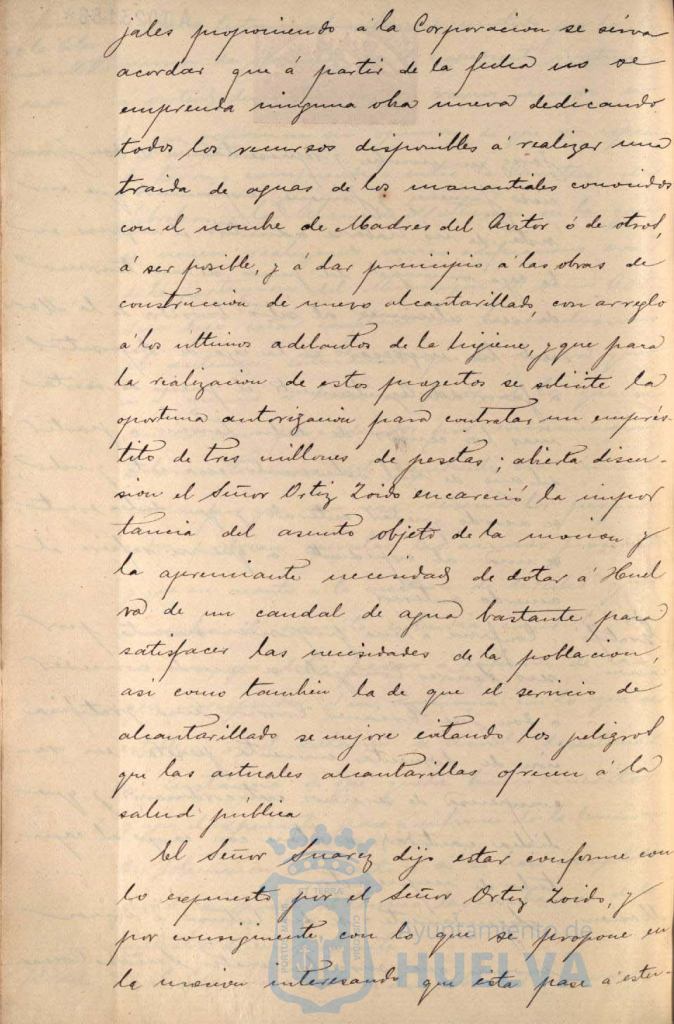 jales proponiendo á la Corporacion se sirva
acordar que á partir de la fecha no se
emprenda ninguna obra nueva dedicando
todos los recursos disponibles á realizar una
traida de aguas de los manantiales conocidos
con el nombre de Madres del Avitor ó de otros,
á ser posible, y á dar principio á las obras de
construccion de nuevo alcantarillado, con arreglo
á los ultimos adelantos de la higiene, y que para
la realizacion de estos proyectos se solicite la
oportuna autorización para contratar un emprés-
tito de tres millones de pesetas; abierta discu-
sion el Señor Ortiz Zoido encareció la impor
tancia del asunto objeto de la mocion y
la apremiante necesidad de dotar á Huel
va de un caudal de agua bastante para
satisfacer las necesidades de la poblacion,
asi como tambien la de que el servicio de
alcantarillado se mejore evitando los peligros
que las actuales alcantarillas ofrecen á la
salud pública
El Señor Suarez dijo estar conforme con
lo expuesto por el Señor Ortiz Zoido, y
por consiguiente con lo que se propone en
la mocion interesando que esta pase á estu-
Ayuntamiento de
HUELVA